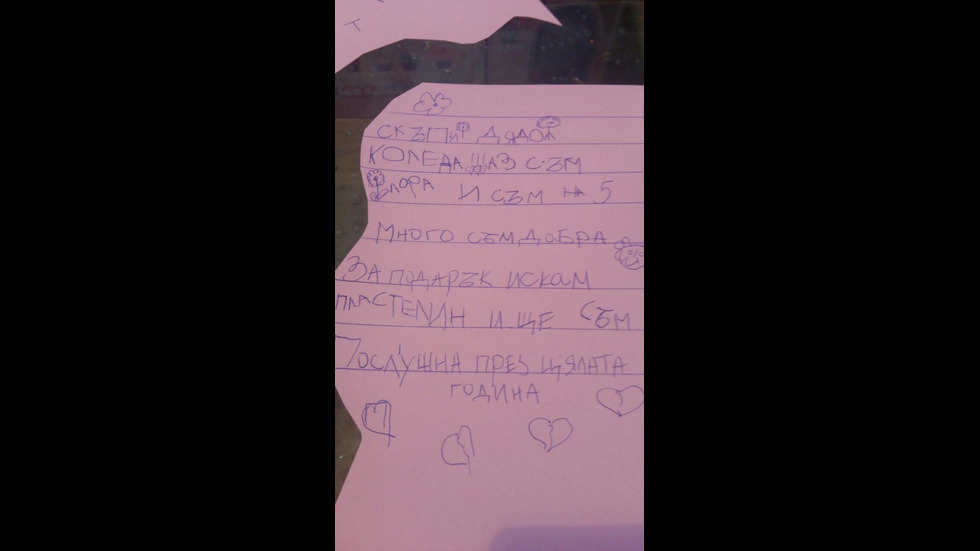 Т
СКЪПИ ДЯДО
КОЛЕДА АЗ СЪМ
ЛОРА И СЪМ НА 5
МНОГО СЪМ ДОБРА
ЗА ПОДАРЪК ИСКАМ
ПЛАСТЕЛИН И ЩЕ СЪМ
ПОСЛУШНА ПРЕЗ ЦЯЛАТА
ГОДИНА